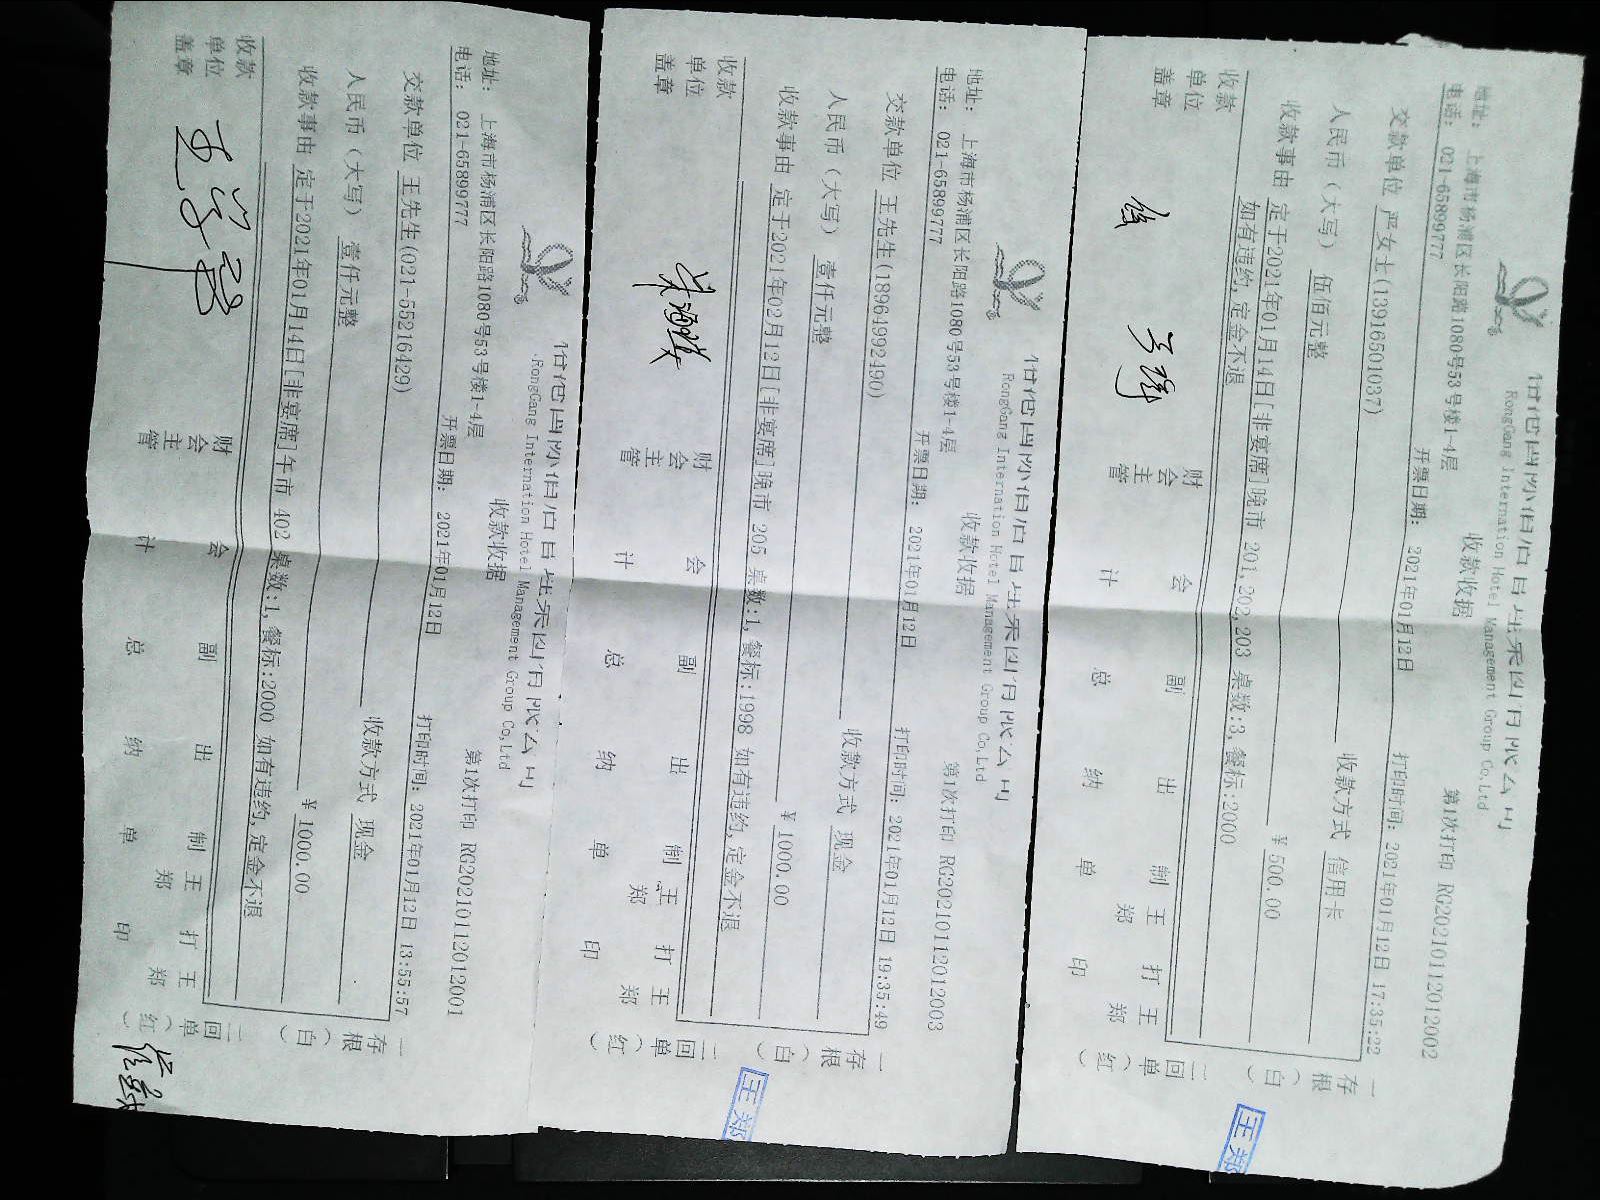 RongGang International Hotel Management Group Co,Ltd
收款收据
第1次打印 RG20210112012002
地址： 上海市杨浦区长阳路1080号53号楼1-4层
电话： 021-65899777
开票日期： 2021年01月12日
打印时间： 2021年01月12日 17:35:22
交款单位 严女士(13916501037)
收款方式 信用卡
人民币（大写） 伍佰元整
¥ 500.00
收款事由 定于2021年01月14日[非宴席]晚市 201,202,203 桌数:3,餐标:2000
如有违约,定金不退
收款单位盖章
财会主管
会计
副总
出纳
制单 王郑
打印 王郑
一存根（白）
二回单（红）
王郑
RongGang International Hotel Management Group Co,Ltd
收款收据
第1次打印 RG20210112012003
地址： 上海市杨浦区长阳路1080号53号楼1-4层
电话： 021-65899777
开票日期： 2021年01月12日
打印时间： 2021年01月12日 19:35:49
交款单位 王先生(18964992490)
收款方式 现金
人民币（大写） 壹仟元整
¥ 1000.00
收款事由 定于2021年02月12日[非宴席]晚市 205 桌数:1,餐标:1998 如有违约,定金不退
收款单位盖章
财会主管
会计
副总
出纳
制单 王郑
打印 王郑
一存根（白）
二回单（红）
王郑
RongGang International Hotel Management Group Co,Ltd
收款收据
第1次打印 RG20210112012001
地址： 上海市杨浦区长阳路1080号53号楼1-4层
电话： 021-65899777
开票日期： 2021年01月12日
打印时间： 2021年01月12日 13:55:57
交款单位 王先生(021-55216429)
收款方式 现金
人民币（大写） 壹仟元整
¥ 1000.00
收款事由 定于2021年01月14日[非宴席]午市 402 桌数:1,餐标:2000 如有违约,定金不退
收款单位盖章
财会主管
会计
副总
出纳
制单 王郑
打印 王郑
一存根（白）
二回单（红）